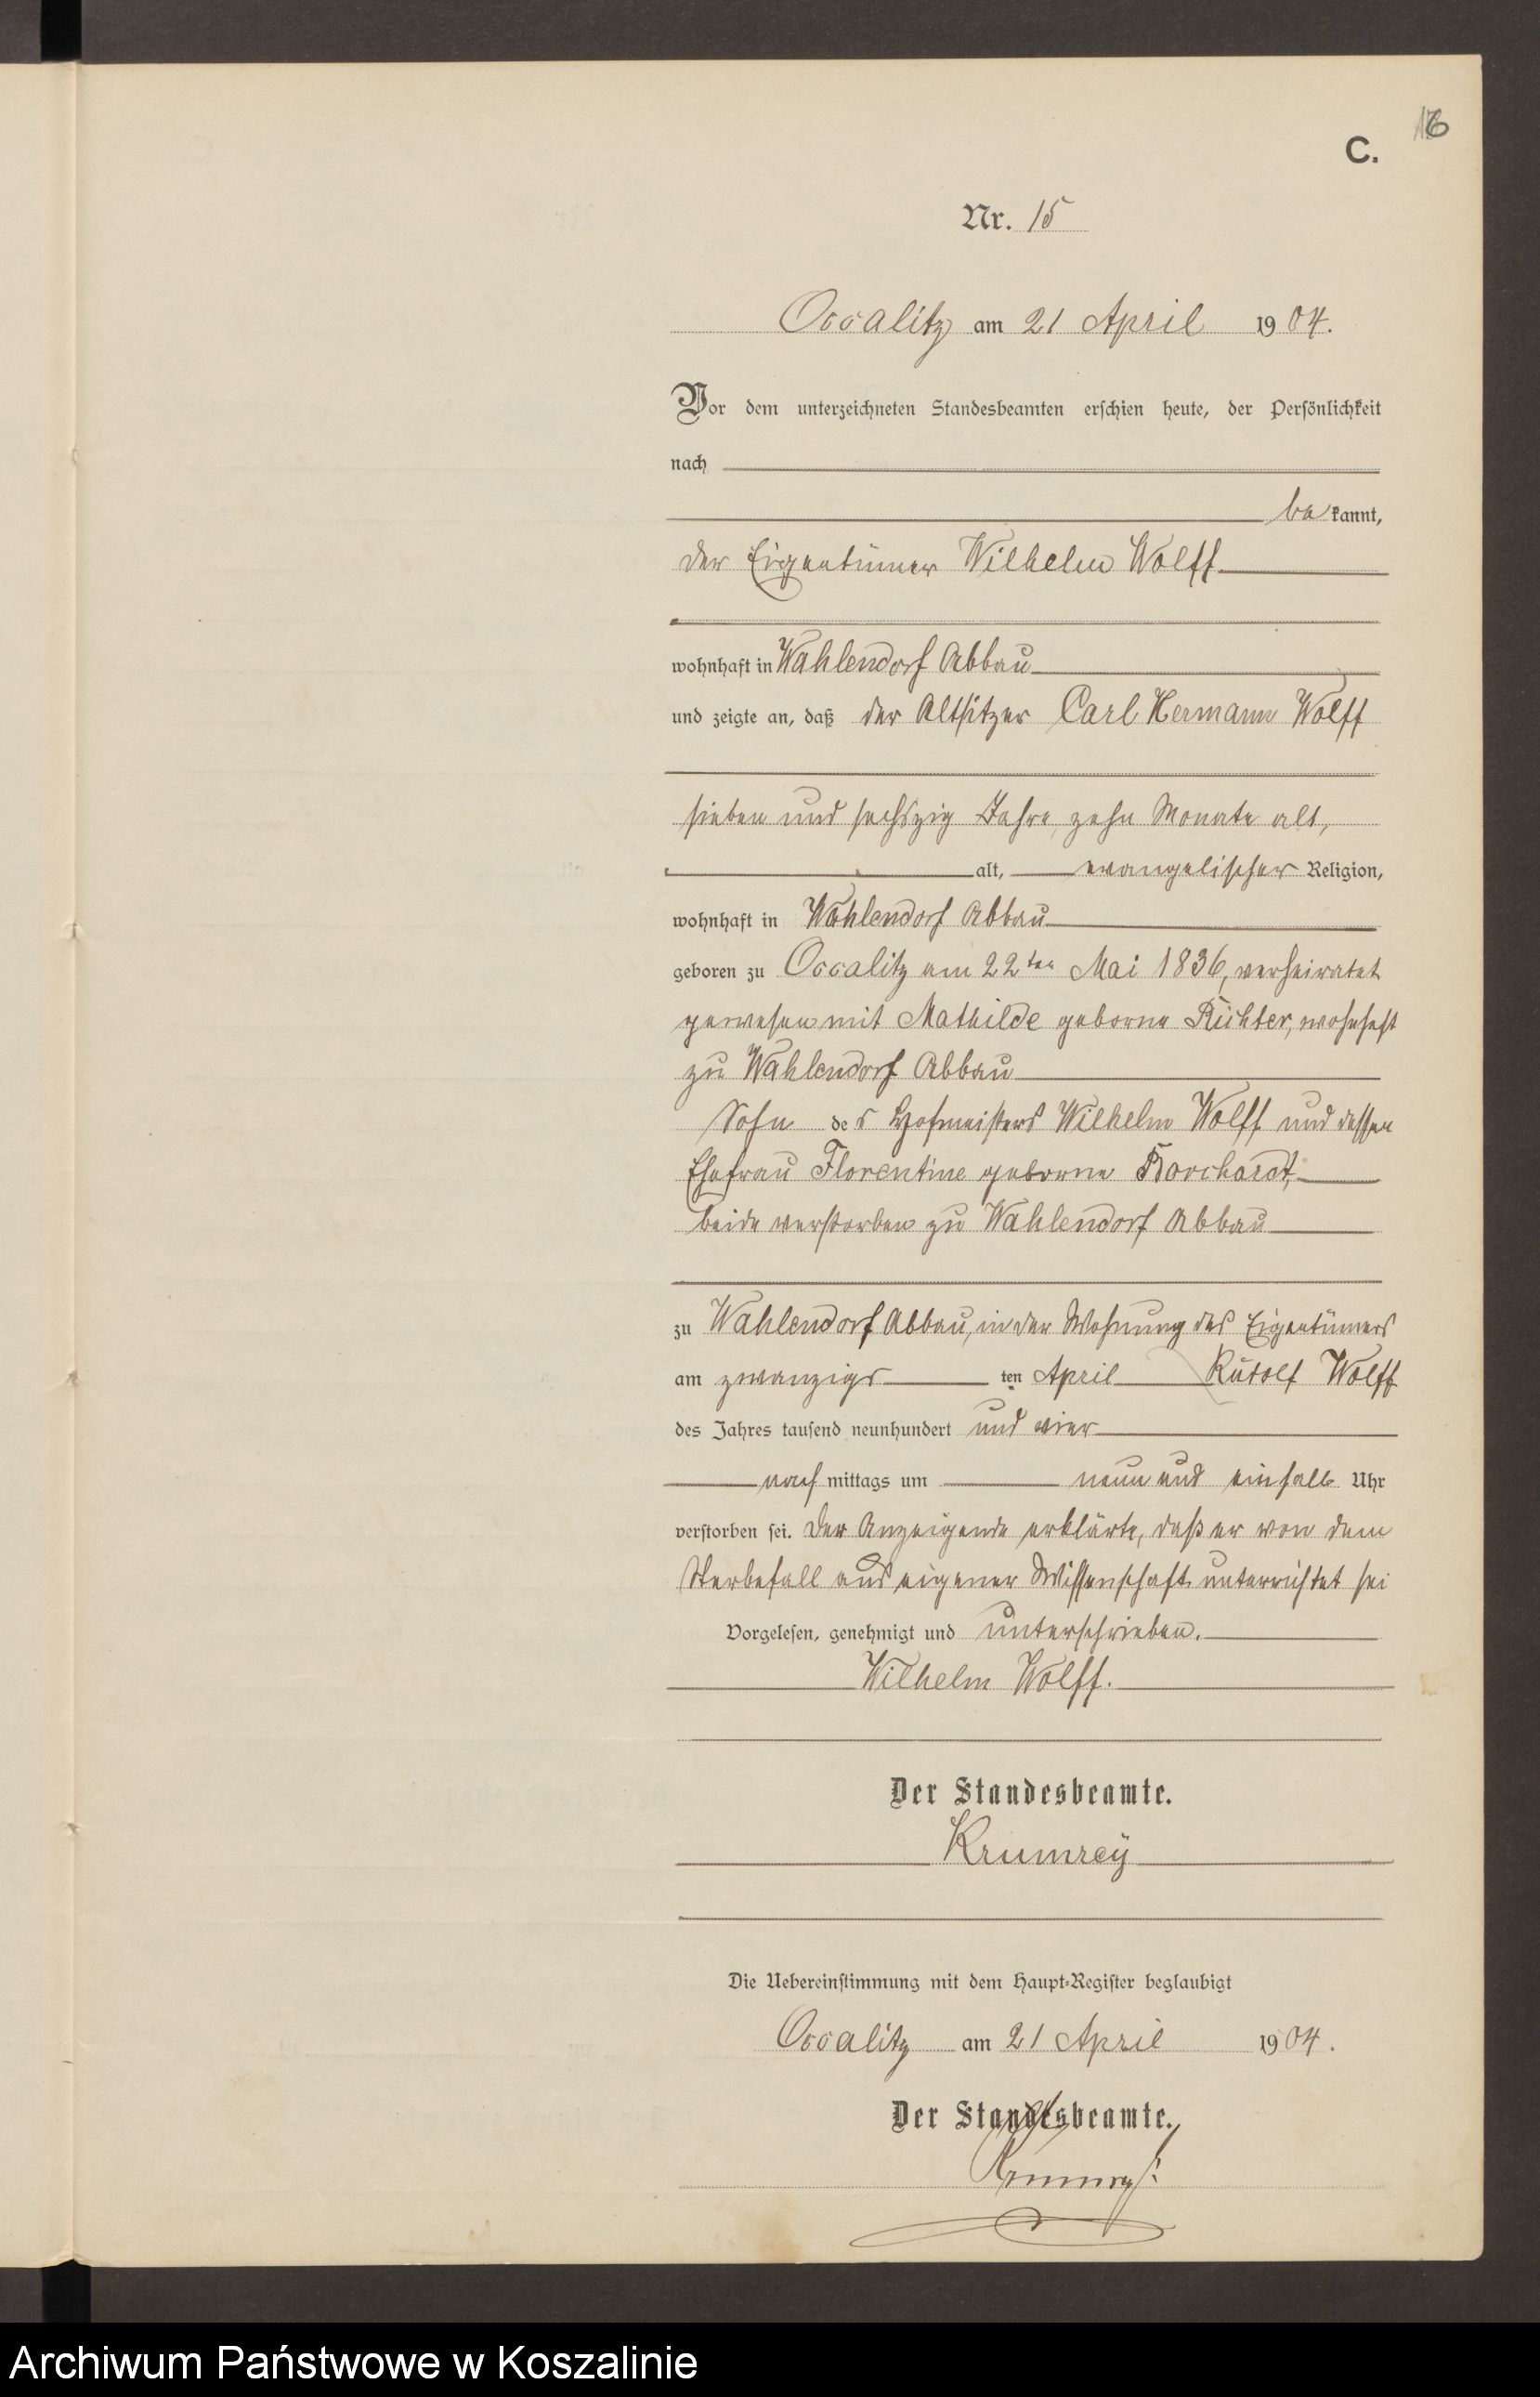 16
C.
Nr. 15
Occalitz am 21 April 1904.
Vor dem unterzeichneten Standesbeamten erschien heute, der Persönlichkeit
nach
bekannt,
der Eigentümer Wilhelm Wolff
wohnhaft in Wahlendorf Abbau
und zeigte an, daß der Altsitzer Carl Hermann Wolff
sieben und sechszig Jahre, zehn Monate alt,
alt, evangelischer Religion,
wohnhaft in Wahlendorf Abbau
geboren zu Occalitz am 22ten Mai 1836, verheiratet
gewesen mit Mathilde geborne Richter, wohnhaft
zu Wahlendorf Abbau
Sohn des Hofmeisters Wilhelm Wolff und dessen
Ehefrau Florentine geborne Borchardt,
beide verstorben zu Wahlendorf Abbau
zu Wahlendorf Abbau, in der Wohnung des Eigentümers
am zwanzigsten April Rudolf Wolff
des Jahres tausend neunhundert und vier
nachmittags um neun und einhalb Uhr
verstorben sei. Der Anzeigende erklärte, daß er von dem
Sterbefall aus eigener Wissenschaft unterrichtet sei
Vorgelesen, genehmigt und unterschrieben.
Wilhelm Wolff.
Der Standesbeamte.
Krumrey
Die Uebereinstimmung mit dem Haupt-Register beglaubigt
Occalitz am 21 April 1904.
Der Standesbeamte.
Krumrey
Archiwum Państwowe w Koszalinie